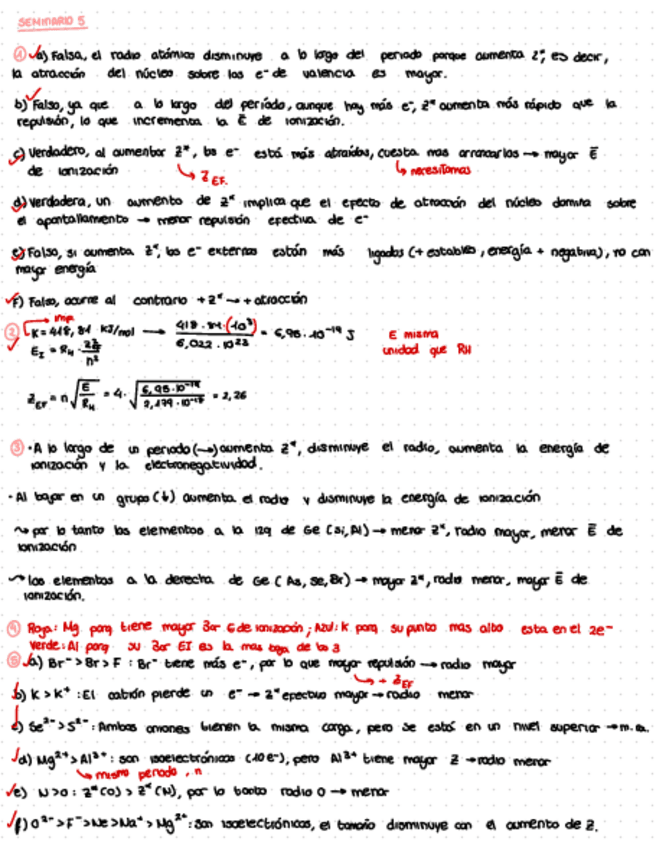 SEMINARIO 5
① a) Falsa, el radio atómico disminuye a lo largo del periodo porque aumenta z*, es decir,
la atracción del núcleo sobre los e- de valencia es mayor.
b) Falso, ya que a lo largo del período, aunque hay más e-, z* aumenta más rápido que la
repulsión, lo que incrementa la Ē de ionización.
c) Verdadero, al aumentar z*, los e- está más atraídos, cuesta mas arrancarlos → mayor Ē
de ionización ↳ Z EF. ↳ necesitamos
d) Verdadera, un aumento de z* implica que el efecto de atracción del núcleo domina sobre
el apantallamiento → menor repulsión efectiva de e-
e) Falso, si aumenta z*, los e- externos están más ligados (+ estables, energía + negativa), no con
mayor energía
f) Falso, ocurre al contrario +z* → + atracción
② imp
K = 418,81 kJ/mol → 418.81.(10³) / 6,022.10²³ = 6,95.10⁻¹⁹ J E misma
E I = R H . Z²ef / n² unidad que RH
Z EF = n √(E / R H) = 4. √(6,95.10⁻¹⁹ / 2,179.10⁻¹⁸) = 2,26
③ · A lo largo de un periodo (→) aumenta z*, disminuye el radio, aumenta la energía de
ionización y la electronegatividad.
· Al bajar en un grupo (↓) aumenta el radio y disminuye la energía de ionización
↝ por lo tanto los elementos a la izq de Ge (Si, Al) → menor z*, radio mayor, menor Ē de
ionización
↝ los elementos a la derecha de Ge (As, Se, Br) → mayor z*, radio menor, mayor Ē de
ionización.
④ Roja: Mg porq tiene mayor 3er E de ionización; Azul: K porq su punto mas alto esta en el 2e-
Verde: Al porq su 3er EI es la mas baja de los 3
⑤ a) Br- > Br > F : Br- tiene más e-, por lo que mayor repulsión → radio mayor
↳ + Z EF
b) K > K+ : El catión pierde un e- → z* efectivo mayor → radio menor
c) Se²⁻ > S²⁻ : Ambos aniones tienen la misma carga, pero Se está en un nivel superior → m.ra.
d) Mg²⁺ > Al³⁺ : son isoelectrónicos (10 e-), pero Al³⁺ tiene mayor Z → radio menor
↳ mismo periodo, n
e) N > O : z*(O) > z*(N), por lo tanto radio O → menor
f) O²⁻ > F- > Ne > Na+ > Mg²⁺ : son isoelectrónicos, el tamaño disminuye con el aumento de Z.